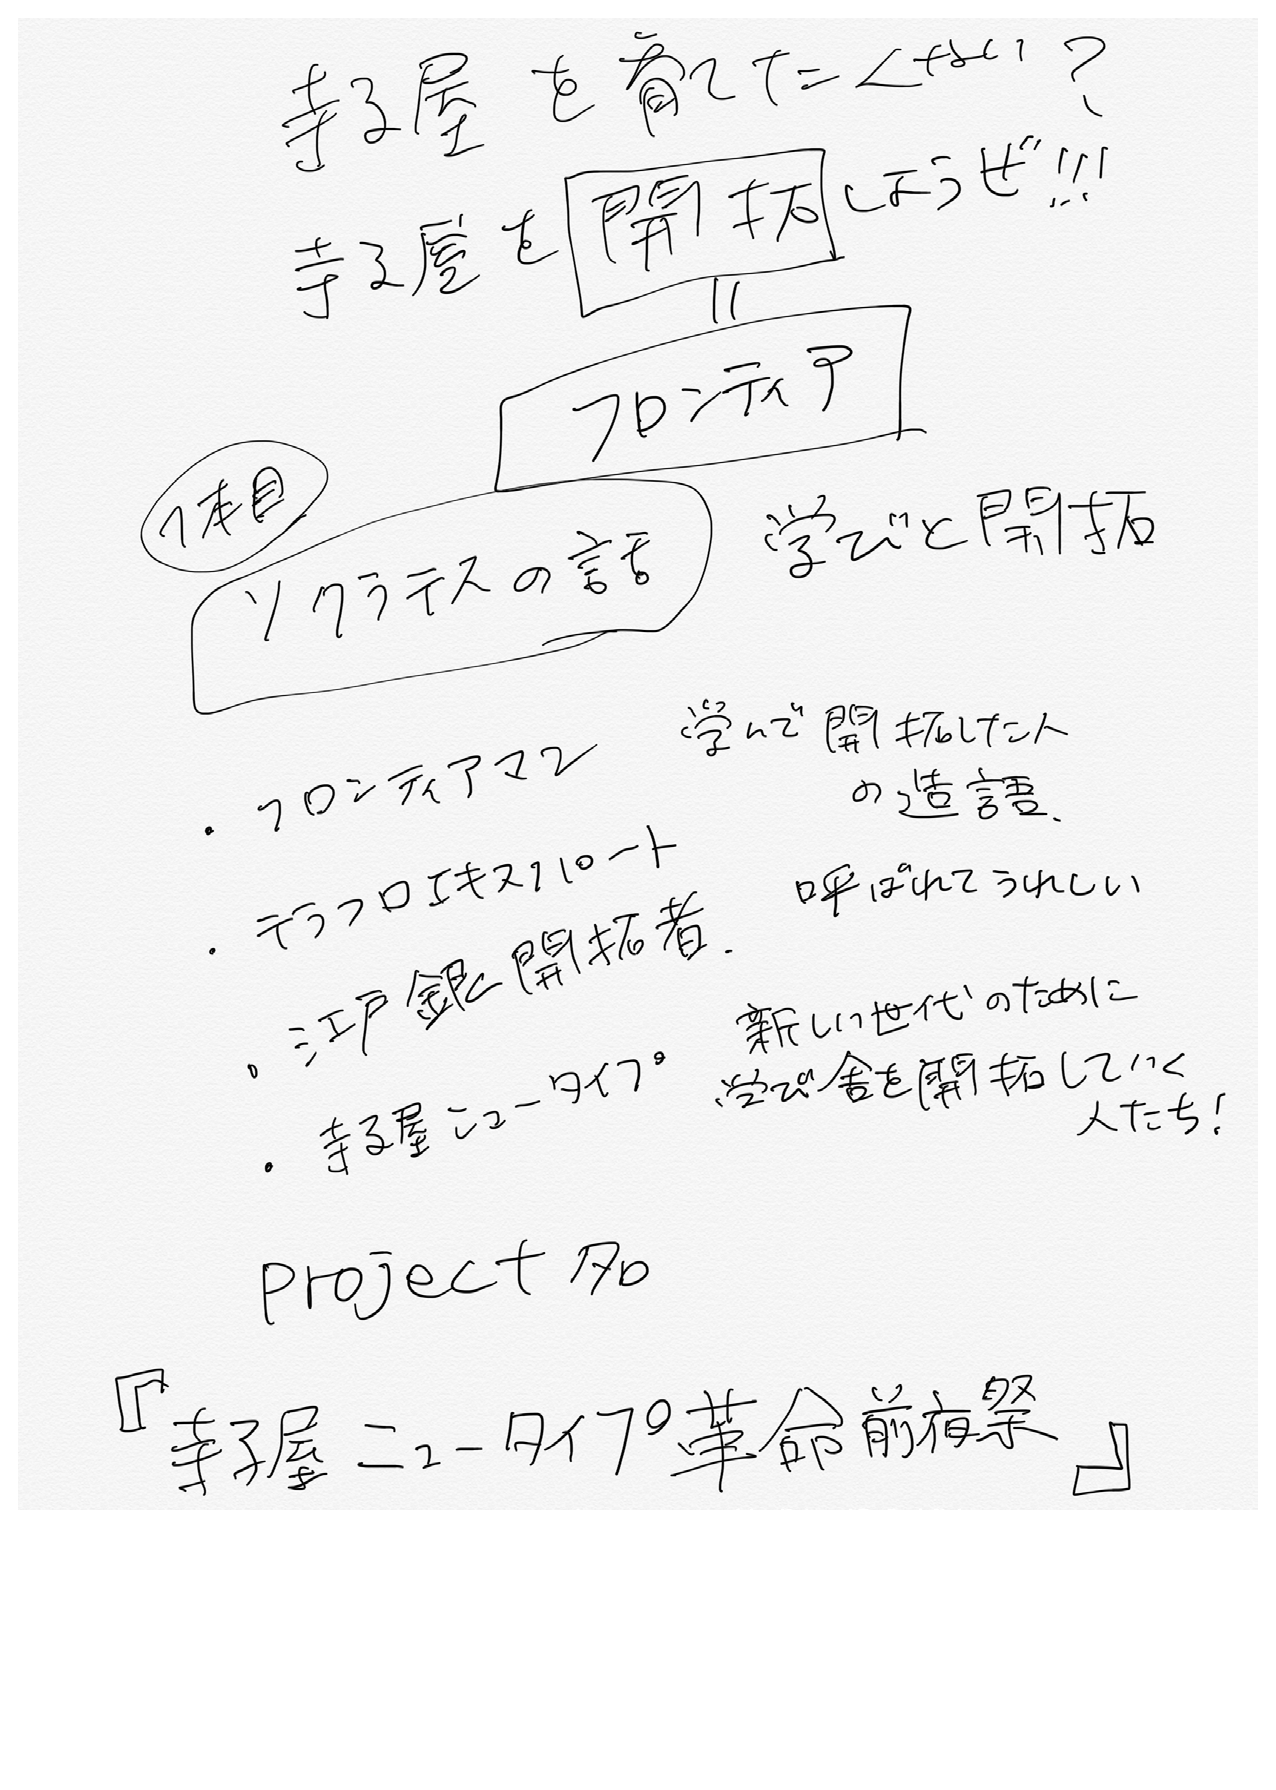 寺子屋を育てたくない?
寺子屋を開拓しようぜ!!!
=
フロンティア
1本目
ソクラテスの話
学びと開拓
・フロンティアマン
学んで開拓した人
の造語.
・テラフロエキスパート
呼ばれてうれしい
・江戸銀開拓者.
新しい世代のために
学び舎を開拓していく
人たち!
・寺子屋ニュータイプ
project名
『寺子屋ニュータイプ革命前夜祭』